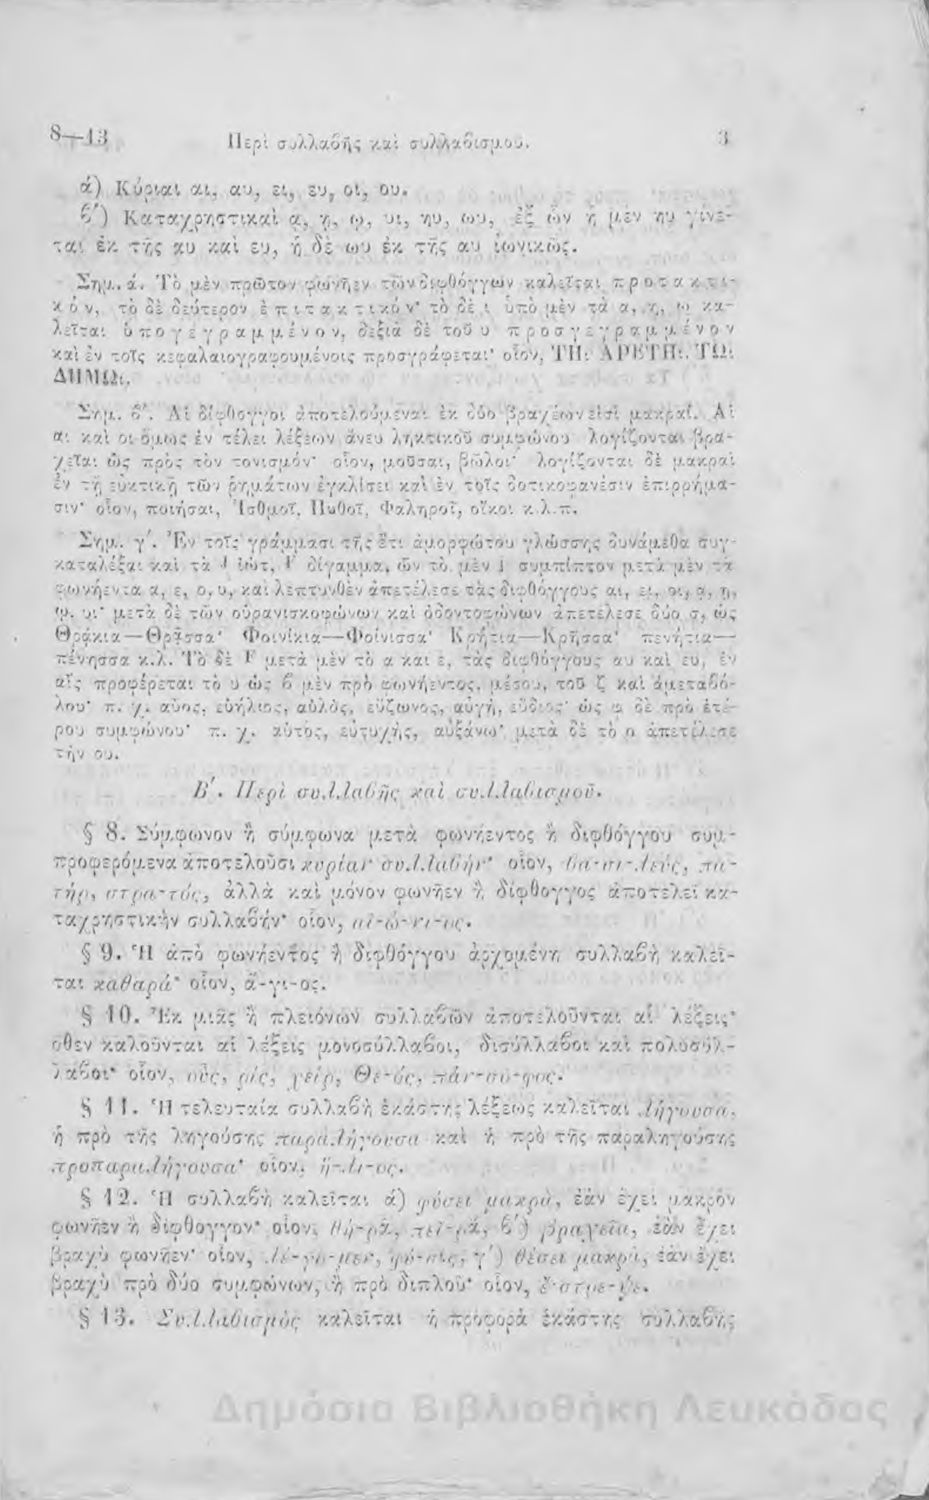 8—13 Περὶ συλλαβῆς καὶ συλλαβισμοῦ. 3
ά) Κύριαι αι, αυ, ει, ευ, οι, ου.
β΄) Καταχρηστικαὶ ᾳ, ῃ, ῳ, υι, ηυ, ωυ, ἐξ ὧν ἡ μὲν ηυ γίνε-
ται ἐκ τῆς αυ καὶ ευ, ἡ δὲ ωυ ἐκ τῆς αυ ἰωνικῶς.
Σημ. ά. Τὸ μὲν πρῶτον φωνῆεν τῶν διφθόγγων καλεῖται προτακτι-
κόν, τὸ δὲ δεύτερον ἐπιτακτικόν· τὸ δὲ ι ὑπὸ μὲν τὰ α, η, ω κα-
λεῖται ὑπογεγραμμένον, δεξιὰ δὲ τοῦ υ προσγεγραμμένον
καὶ ἐν τοῖς κεφαλαιογραφουμένοις προσγράφεται· οἷον, ΤΗι ΑΡΕΤΗι, ΤΩι
ΔΗΜΩι.
Σημ. β΄. Αἱ δίφθογγοι ἀποτελούμεναι ἐκ δύο βραχέων εἰσὶ μακραί. Αἱ
αι καὶ οι ὅμως ἐν τέλει λέξεων ἄνευ ληκτικοῦ συμφώνου λογίζονται βρα-
χεῖαι ὡς πρὸς τὸν τονισμόν· οἷον, μοῦσαι, βῶλοι· λογίζονται δὲ μακραὶ
ἐν τῇ εὐκτικῇ τῶν ῥημάτων ἐγκλίσει καὶ ἐν τοῖς δοτικοφανέσιν ἐπιρρήμα-
σιν· οἷον, ποιήσαι, Ἰσθμοῖ, Πυθοῖ, Φαληροῖ, οἴκοι κ.λ.π.
Σημ. γ΄. Ἐν τοῖς γράμμασι τῆς ἔτι ἀμορφώτου γλώσσης δυνάμεθα συγ-
καταλέξαι καὶ τὰ J ἰώτ, F δίγαμμα, ὧν τὸ μὲν J συμπίπτον μετὰ μὲν τὰ
φωνήεντα α, ε, ο, υ, καὶ λεπτυνθὲν ἀπετέλεσε τὰς διφθόγγους αι, ει, οι, ᾳ, ῃ,
ῳ, υι· μετὰ δὲ τῶν οὐρανισκοφώνων καὶ ὀδοντοφώνων ἀπετέλεσε δύο σ, ὡς
Θράκια—Θρᾷσσα· Φοινίκια—Φοίνισσα· Κρήτια—Κρῆσσα· πενήτια—
πένησσα κ.λ. Τὸ δὲ F μετὰ μὲν τὸ α και ε, τὰς διφθόγγους αυ καὶ ευ, ἐν
αἷς προφέρεται τὸ υ ὡς β μὲν πρὸ φωνήεντος, μέσου, τοῦ ζ καὶ ἀμεταβό-
λου· π. χ. αὖος, εὐήλιος, αὐλός, εὔζωνος, αὐγή, εὔδιος· ὡς φ δὲ πρὸ ἑτέ-
ρου συμφώνου· π. χ. αὐτός, εὐτυχής, αὐξάνω· μετὰ δὲ τὸ ο ἀπετέλεσε
τὴν ου.
Β΄. Περὶ συλλαβῆς καὶ συλλαβισμοῦ.
§ 8. Σύμφωνον ἢ σύμφωνα μετὰ φωνήεντος ἢ διφθόγγου συμ-
προφερόμενα ἀποτελοῦσι κυρίαν συλλαβήν· οἷον, βα-σι-λεύς, πα-
τήρ, στρα-τός, ἀλλὰ καὶ μόνον φωνῆεν ἢ δίφθογγος ἀποτελεῖ κα-
ταχρηστικὴν συλλαβήν· οἷον, αἰ-ώ-νι-ος.
§ 9. Ἡ ἀπὸ φωνήεντος ἢ διφθόγγου ἀρχομένη συλλαβὴ καλεῖ-
ται καθαρά· οἷον, ἅ-γι-ος.
§ 10. Ἐκ μιᾶς ἢ πλειόνων συλλαβῶν ἀποτελοῦνται αἱ λέξεις·
ὅθεν καλοῦνται αἱ λέξεις μονοσύλλαβοι, δισύλλαβοι καὶ πολυσύλ-
λαβοι· οἷον, οὖς, ῥίς, χείρ, Θε-ός, πάν-σο-φος.
§ 11. Ἡ τελευταία συλλαβὴ ἑκάστης λέξεως καλεῖται λήγουσα,
ἡ πρὸ τῆς ληγούσης παραλήγουσα καὶ ἡ πρὸ τῆς παραληγούσης
προπαραλήγουσα· οἷον, ἥ-λι-ος.
§ 12. Ἡ συλλαβὴ καλεῖται ά) φύσει μακρά, ἐὰν ἔχει μακρὸν
φωνῆεν ἢ δίφθογγον· οἷον, θή-ρα, πεῖ-ρα, β΄) βραχεῖα, ἐὰν ἔχει
βραχὺ φωνῆεν· οἷον, λέ-γο-μεν, φύ-σις, γ΄) θέσει μακρά, ἐὰν ἔχει
βραχὺ πρὸ δύο συμφώνων, ἢ πρὸ διπλοῦ· οἷον, ἔ-στρε-ψε.
§ 13. Συλλαβισμὸς καλεῖται ἡ προφορὰ ἑκάστης συλλαβῆς
Δημόσια Βιβλιοθήκη Λευκάδας